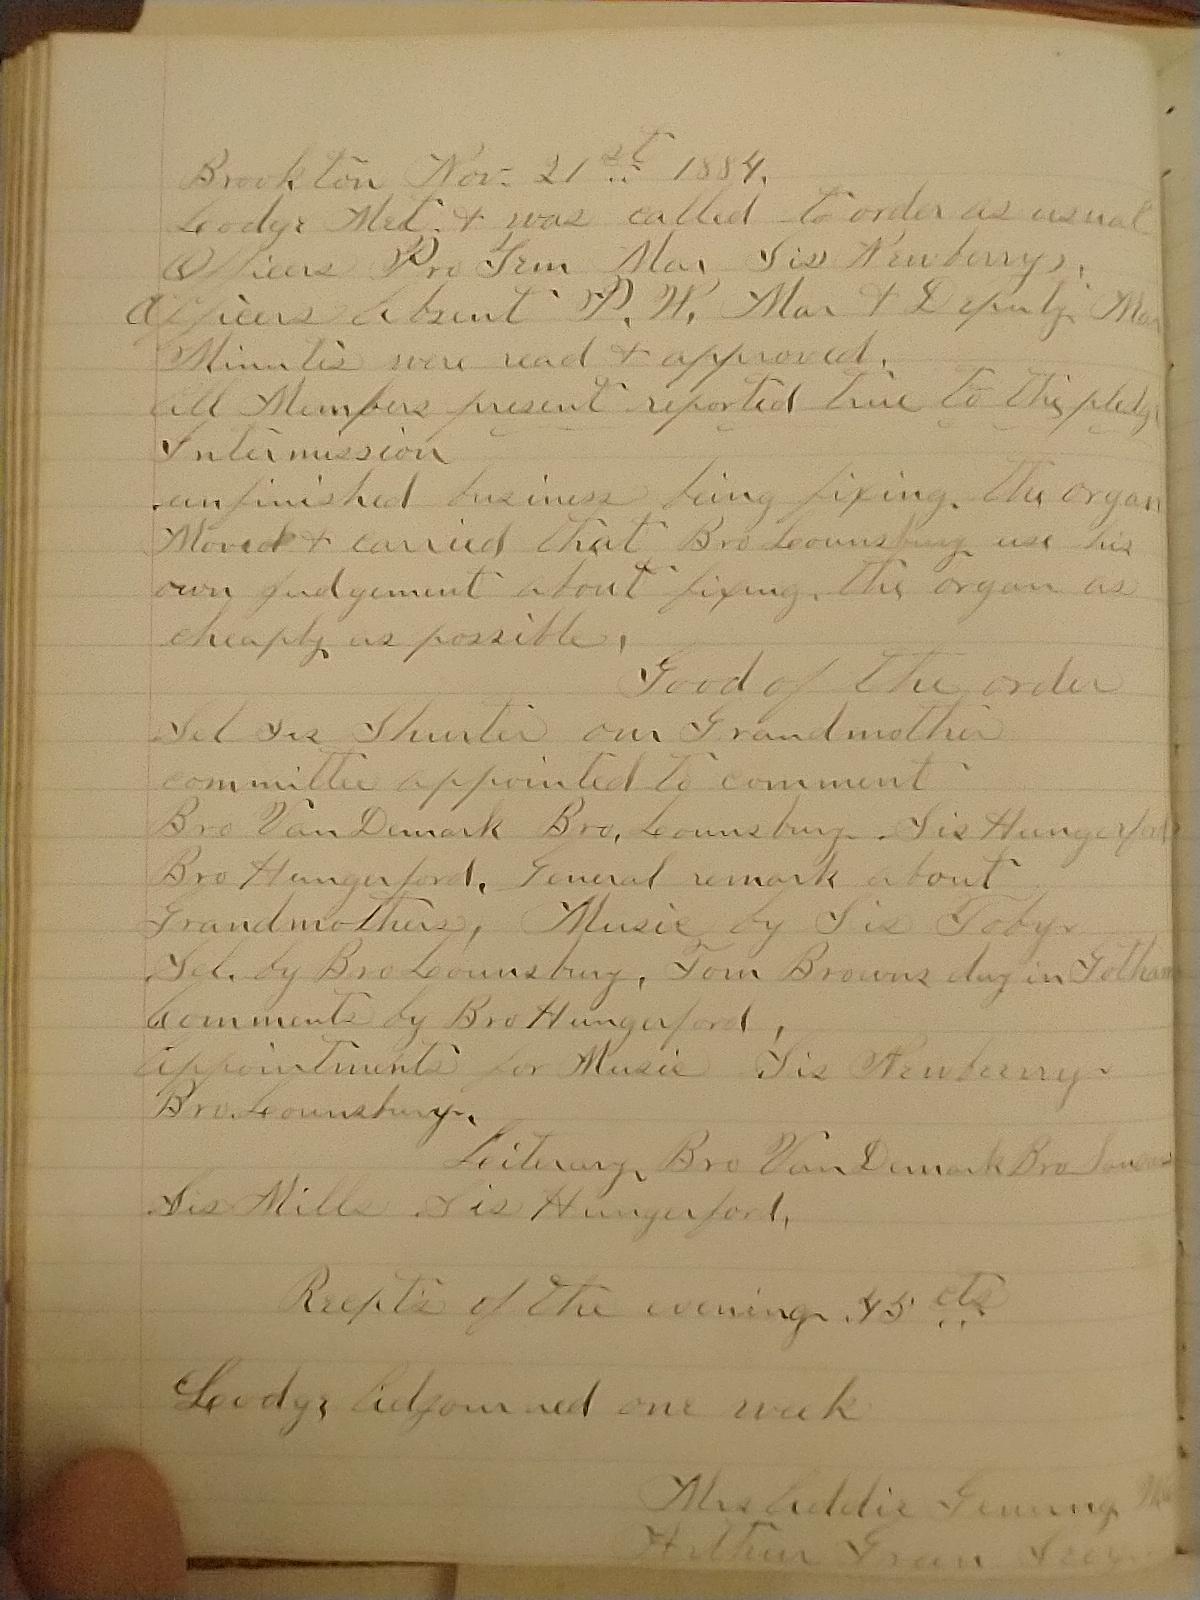 Brookton Nov. 21st 1884.
Lodge Met. & was called to order as usual
Officers Pro Tem Mar, Sis Newberry,
Officers Absent P. W. Mar & Deputy Mar
Minutes were read & approved.
All Members present reported true to the pledge
Intermission
unfinished business being fixing the organ
Moved & carried that Bro Lounsbury use his
own judgement about fixing the organ as
cheaply as possible,
Good of the order
Sel Sis Shurter our Grandmother
committee appointed to comment
Bro Van Demark Bro, Lounsbury. Sis Hungerford
Bro Hungerford. General remark about
Grandmothers, Music by Sis Toby
Sel. by Bro Lounsbury, Tom Browns day in Gotham
Comments by Bro Hungerford,
Appointments for Music Sis Newberry
Bro. Lounsbury.
Literary Bro Van Demark Bro
Sis Mills Sis Hungerford,
Recpts of the evening .45 cts
Lodge Adjourned one week
Mrs Addie Genung
Arthur